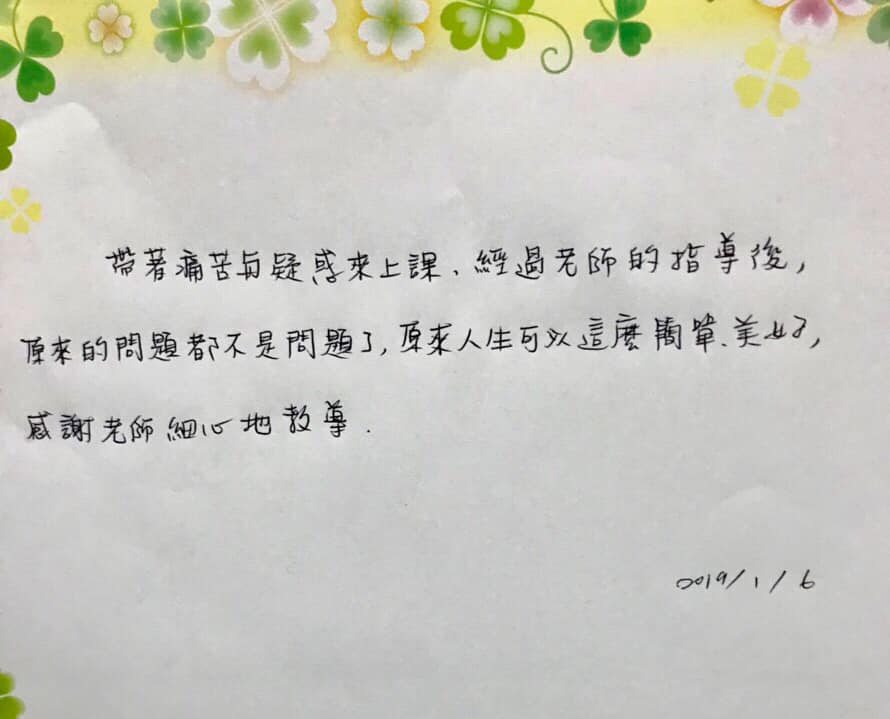 帶著痛苦与疑惑來上課、經過老師的指導後,
原來的問題都不是問題了,原來人生可以這麼簡單、美好,
感謝老師細心地教導.
2019/1/6